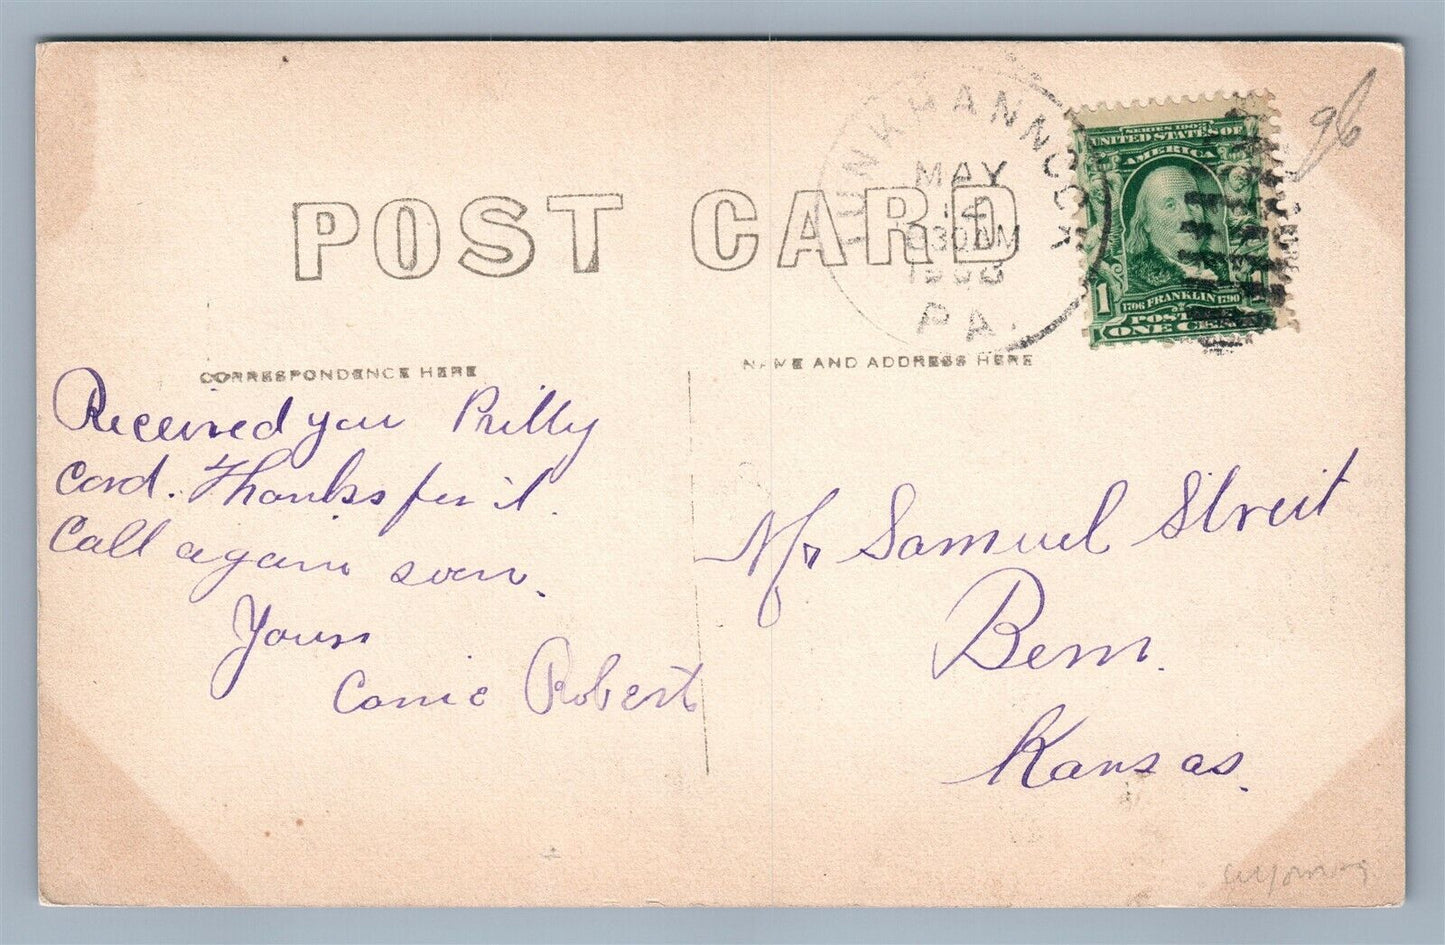 POST CARD
TUNKHANNOCK
MAY
830AM
1908
PA.
SERIES 1902
UNITED STATES OF
AMERICA
1706 FRANKLIN 1790
POSTAGE
ONE CENT
1
96
CORRESPONDENCE HERE
NAME AND ADDRESS HERE
Received you Prilly
Card. Thanks for it.
Call again soon.
Yours
Carrie Robert
Mr Samuel Streit
Bern.
Kansas.
Wyoming